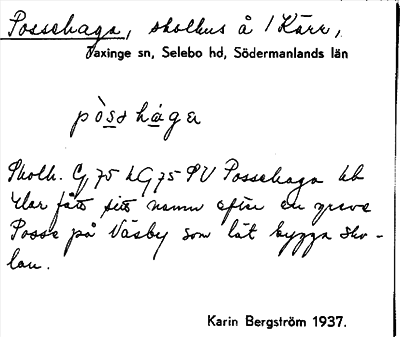 Possehaga, skolhus å 1 Kärr,
Vaxinge sn, Selebo hd, Södermanlands län
pòs̲s hag̲a
Skolh. Gj 75 LG 75 SV Possehaga kb
Har fått sitt namn efter en greve
Posse på Väsby som låt bygga sko-
lan.
Karin Bergström 1937.